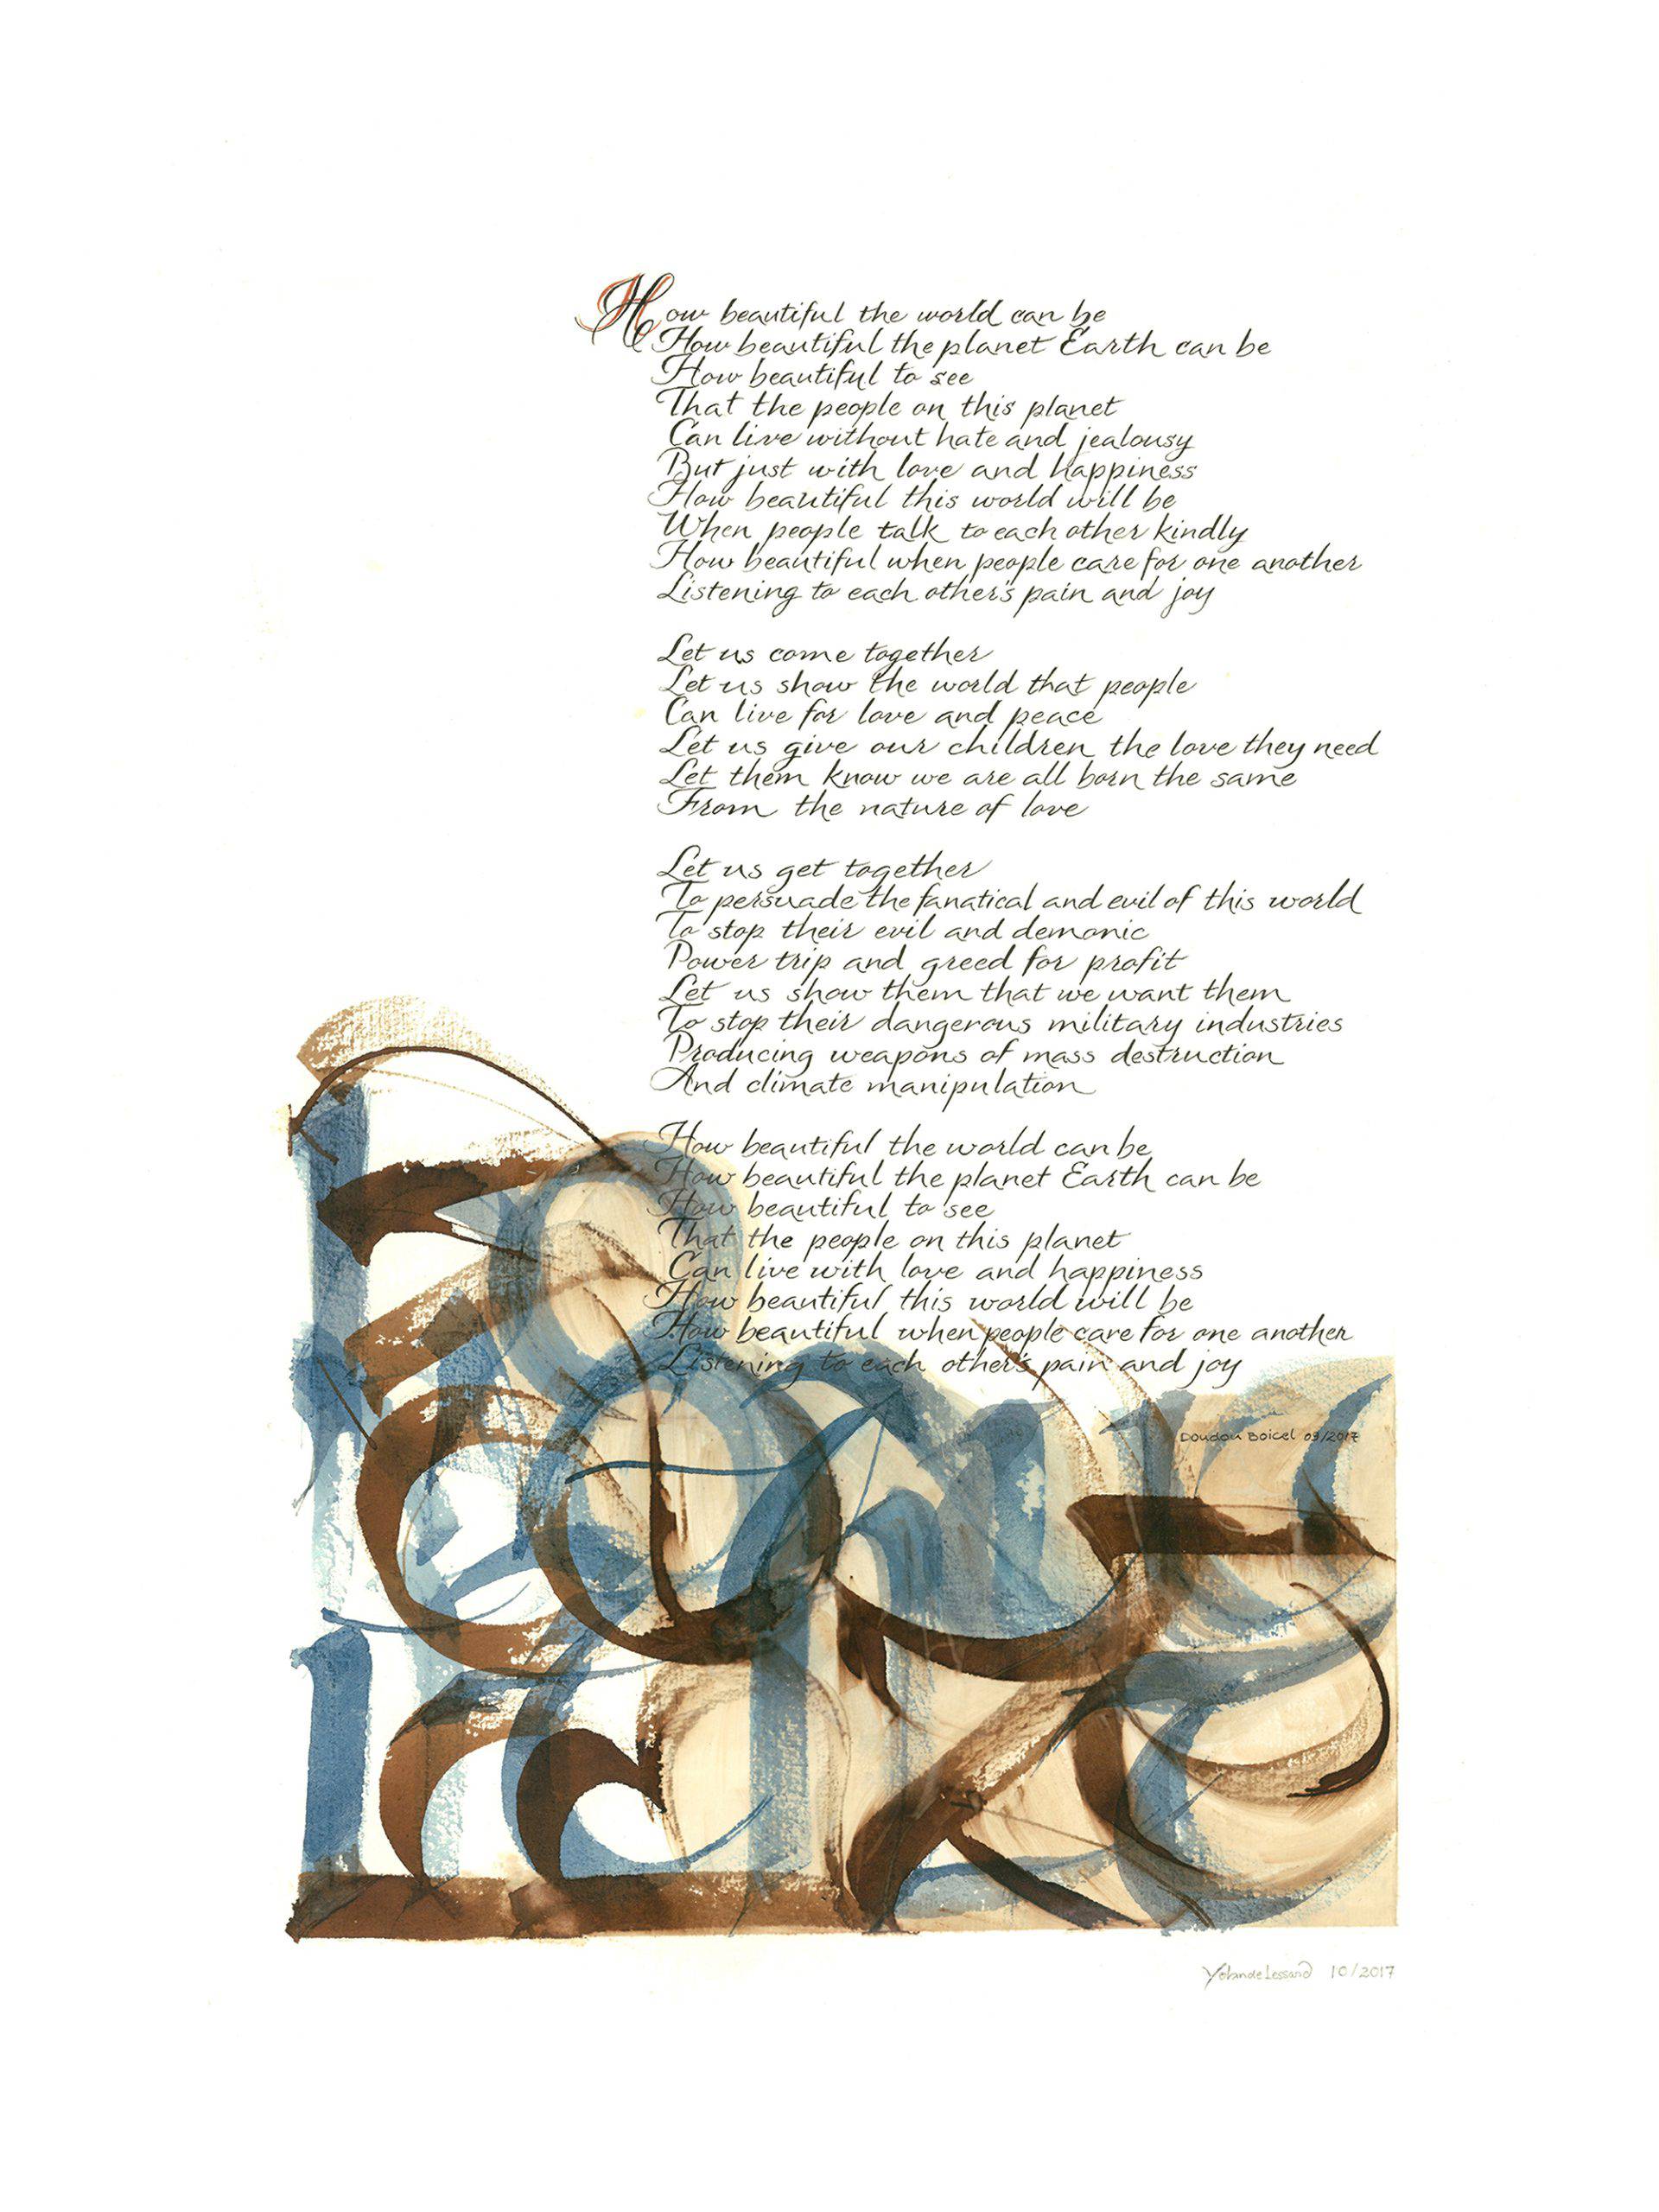 How beautiful the world can be
How beautiful the planet Earth can be
How beautiful to see
That the people on this planet
Can live without hate and jealousy
But just with love and happiness
How beautiful this world will be
When people talk to each other kindly
How beautiful when people care for one another
Listening to each other's pain and joy
Let us come together
Let us show the world that people
Can live for love and peace
Let us give our children the love they need
Let them know we are all born the same
From the nature of love
Let us get together
To persuade the fanatical and evil of this world
To stop their evil and demonic
Power trip and greed for profit
Let us show them that we want them
To stop their dangerous military industries
Producing weapons of mass destruction
And climate manipulation
How beautiful the world can be
How beautiful the planet Earth can be
How beautiful to see
That the people on this planet
Can live with love and happiness
How beautiful this world will be
How beautiful when people care for one another
Listening to each other's pain and joy
Doudou Boicel 09/2017
Yolande Lessard 10/2017